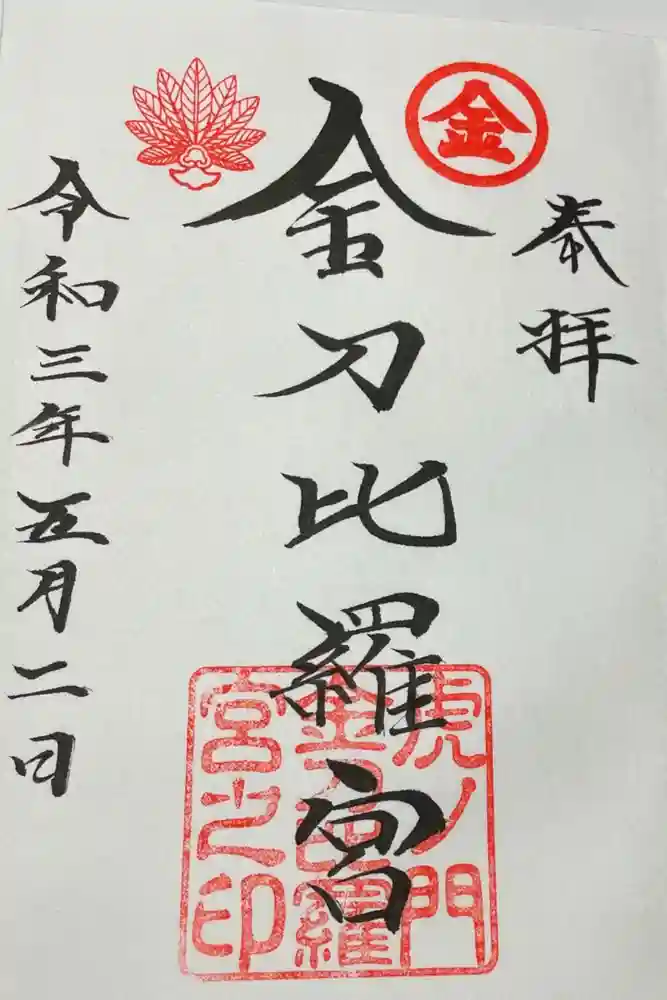 奉拝
金
金刀比羅宮
虎ノ門
金刀比羅
宮之印
令和三年五月二日